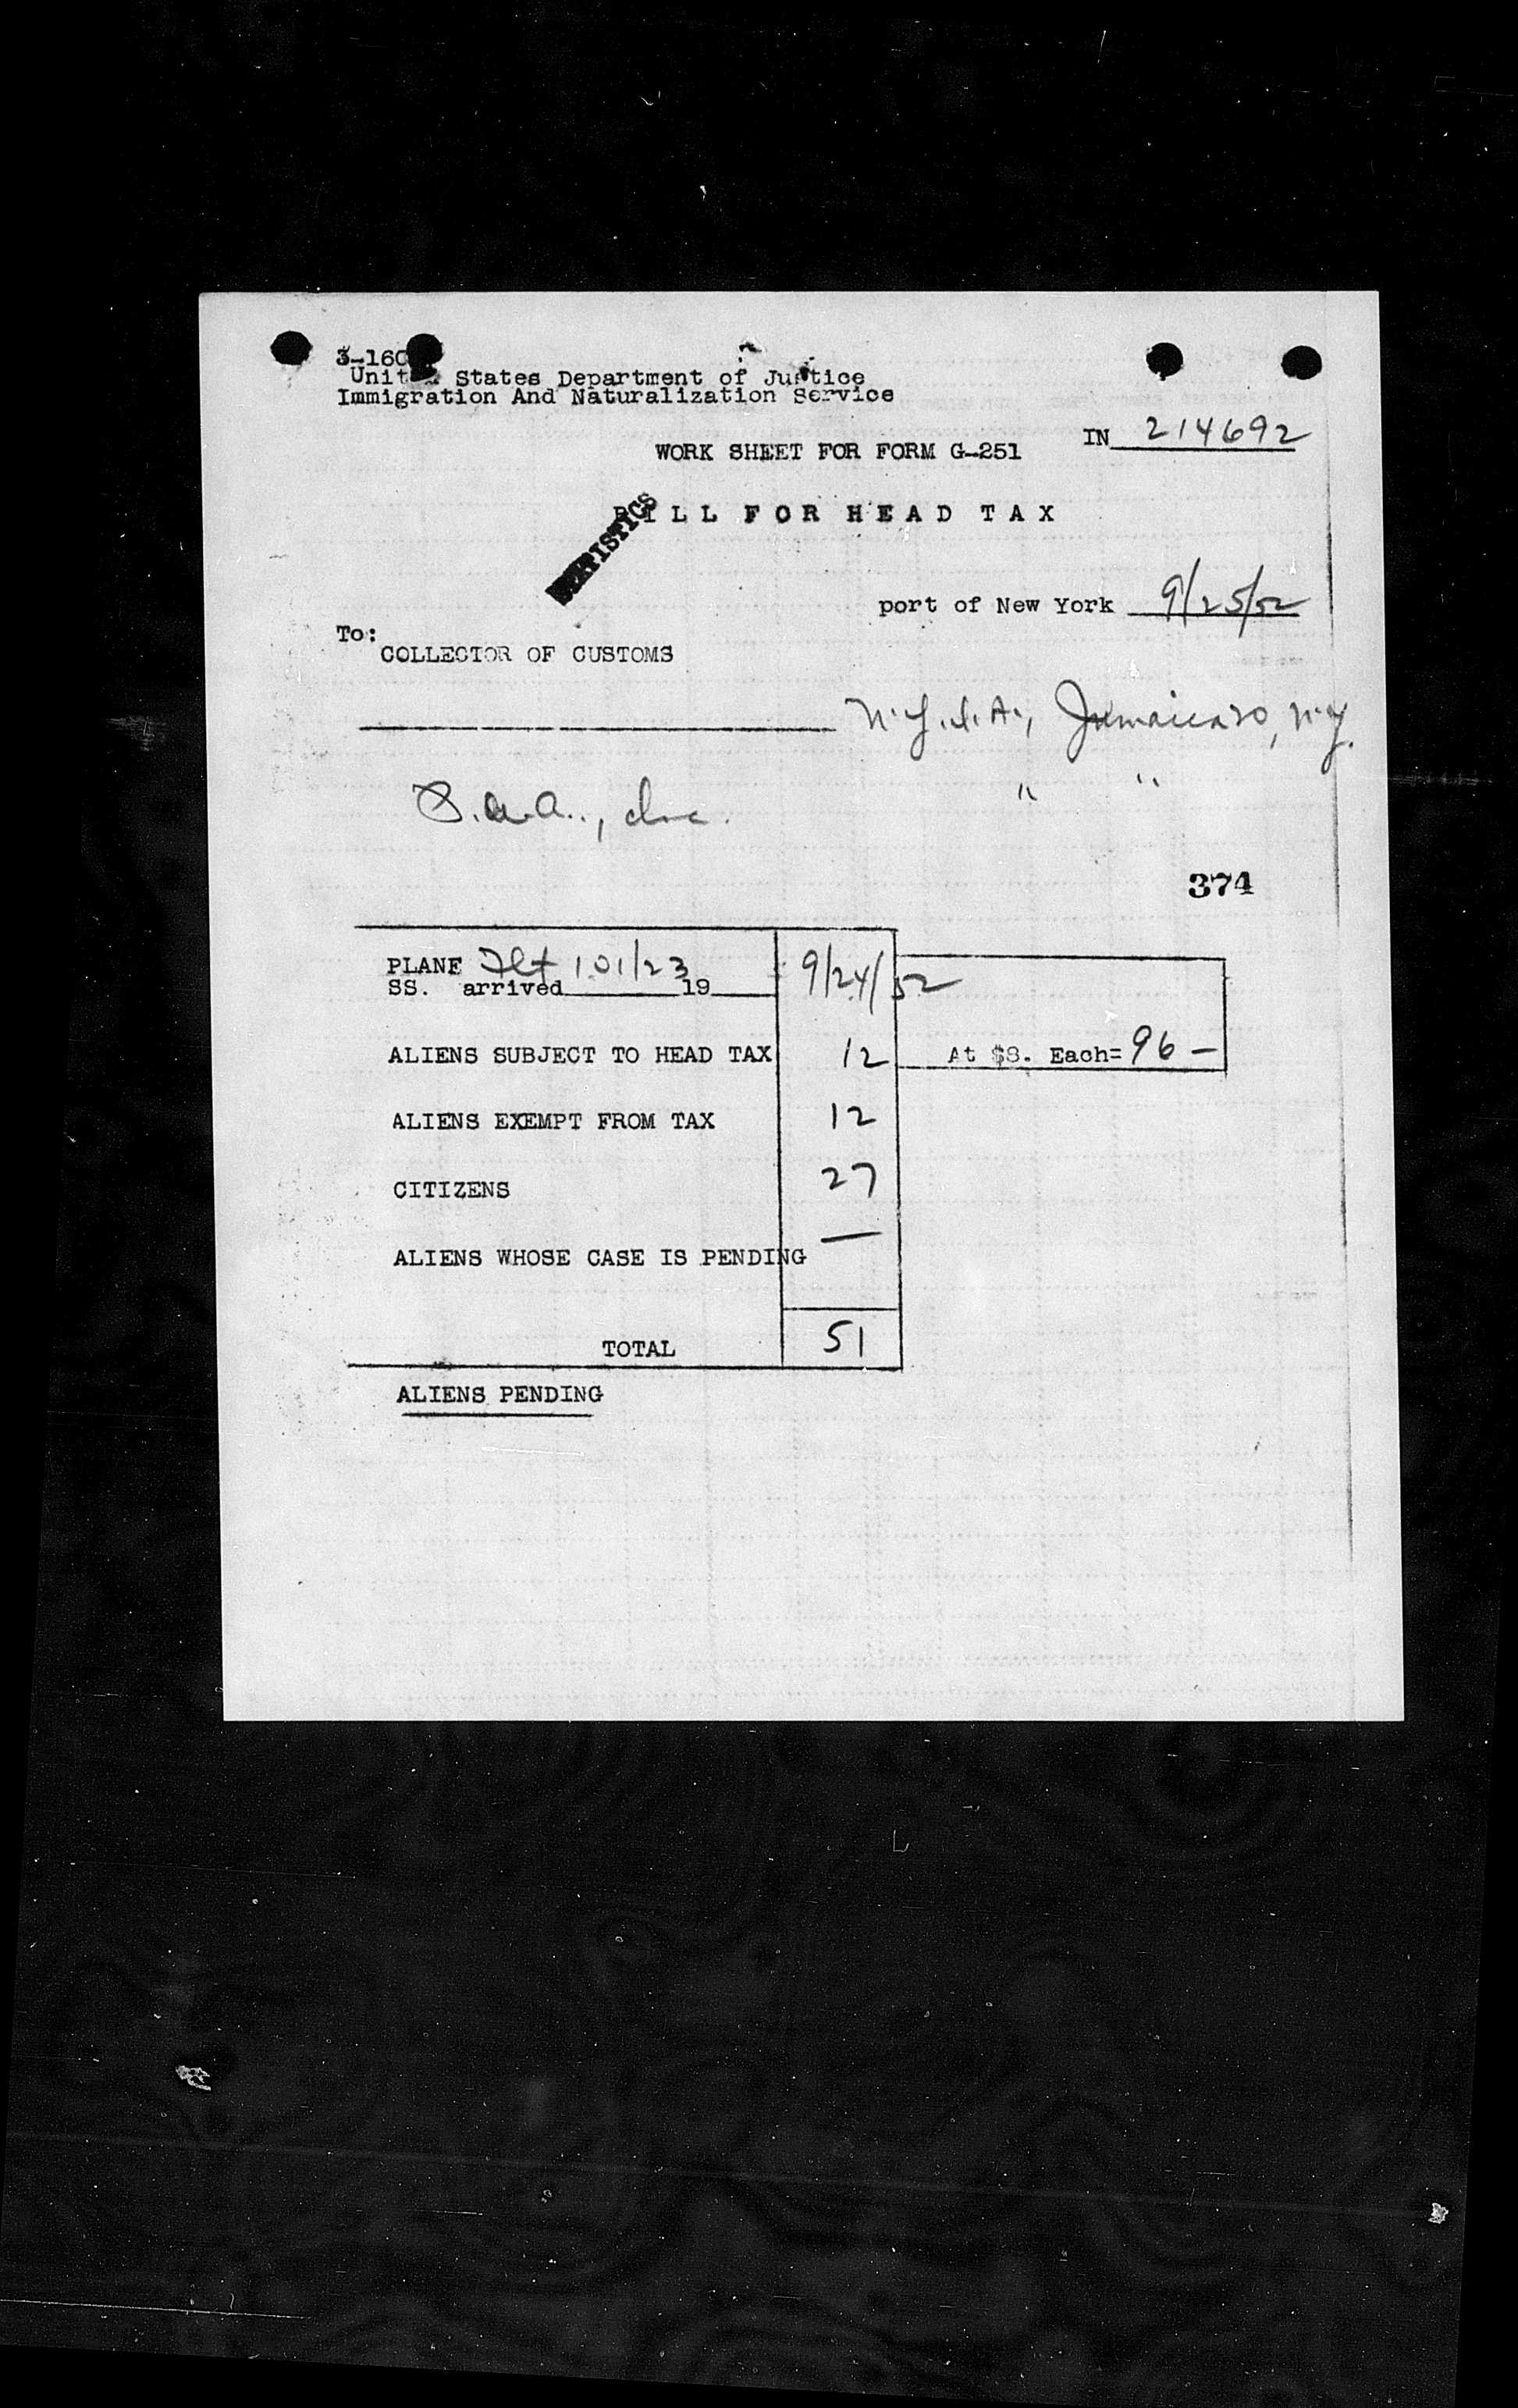 3-160
United States Department of Justice
Immigration And Naturalization Service
IN 214692
WORK SHEET FOR FORM G-251
STATISTICS
BILL FOR HEAD TAX
port of New York 9/25/52
To:
COLLECTOR OF CUSTOMS
N.Y.I.A., Jamaica 30, N.Y.
P.A.A., Inc. " "
374
PLANE Flt 101/23 9/24/52
SS. arrived 19
ALIENS SUBJECT TO HEAD TAX 12 At $8. Each= 96 —
ALIENS EXEMPT FROM TAX 12
CITIZENS 27
ALIENS WHOSE CASE IS PENDING —
TOTAL 51
ALIENS PENDING